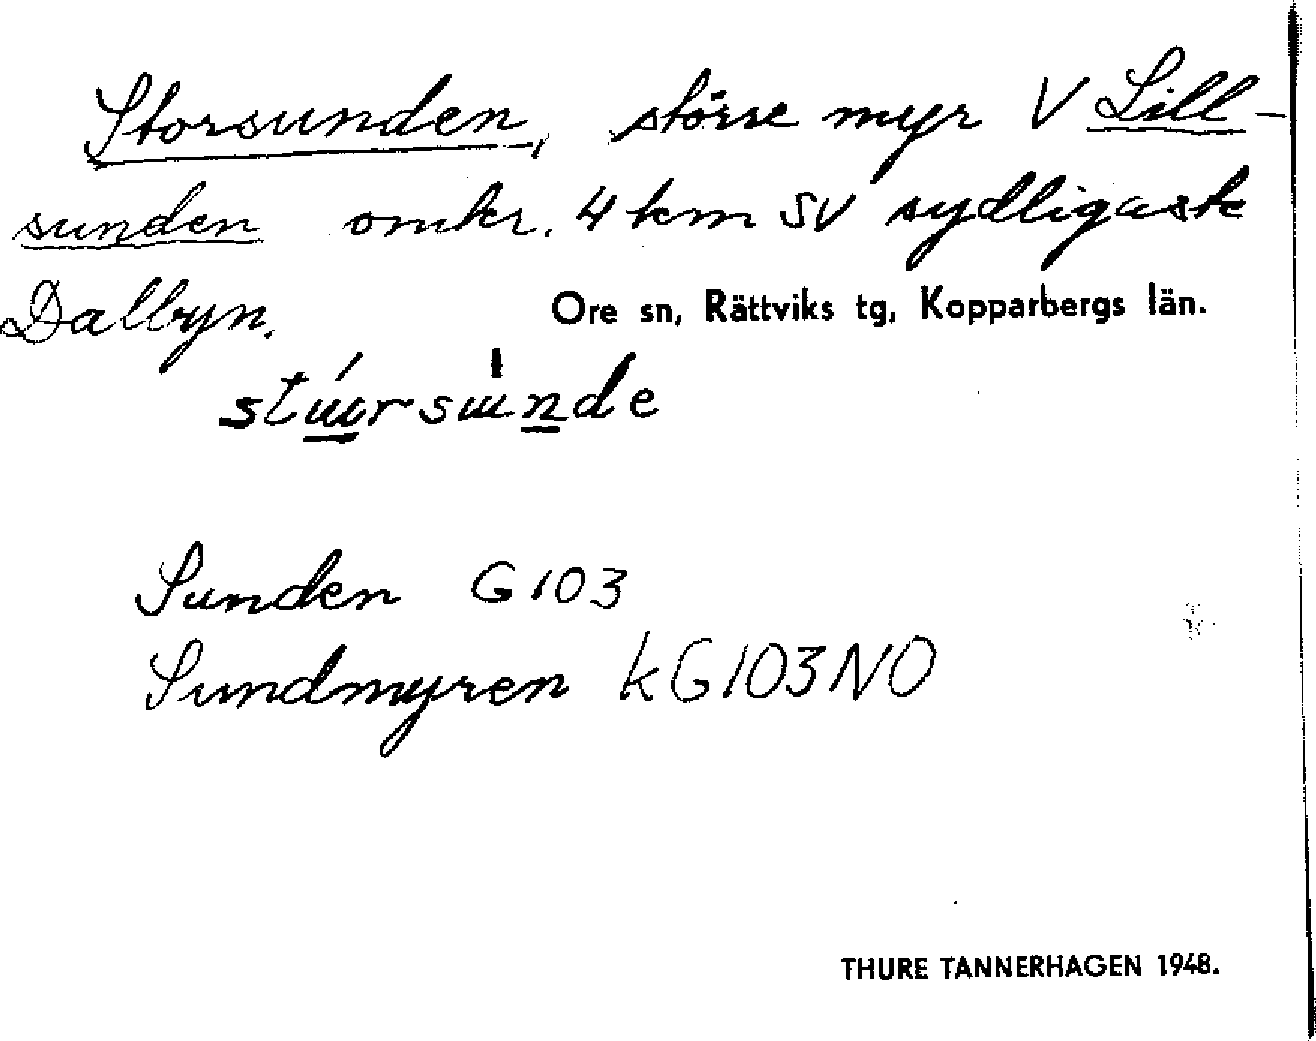 Storsunden, större myr V Lill-
sunden omkr. 4 km SV sydligaste
Dalbyn.
Ore sn, Rättviks tg, Kopparbergs län.
Sunden G103
Sundmyren kG103NO
THURE TANNERHAGEN 1948.